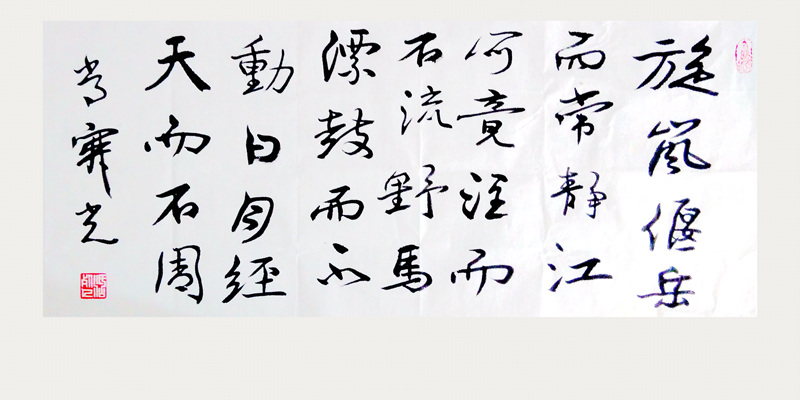 旋嵐偃岳
而常靜江
河竟注而
不流野馬
漂鼓而不
動日月經
天而不周
光